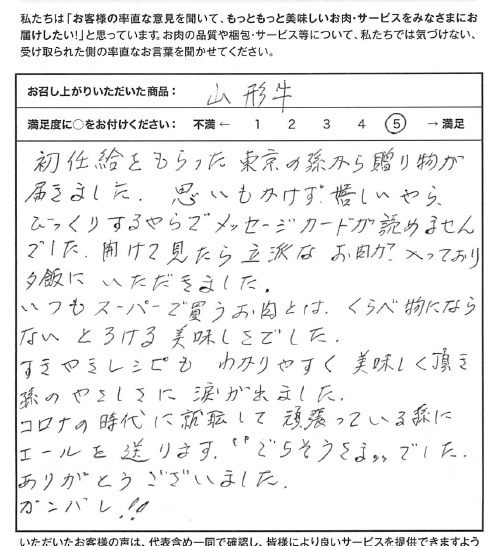 私たちは「お客様の率直な意見を聞いて、もっともっと美味しいお肉・サービスをみなさまにお
届けしたい!」と思っています。お肉の品質や梱包・サービス等について、私たちでは気づけない、
受け取られた側の率直なお言葉を聞かせてください。
お召し上がりいただいた商品: 山形牛
満足度に○をお付けください: 不満 ← 1 2 3 4 5 → 満足
初任給をもらった東京の孫から贈り物が
届きました。思いもかけず嬉しいやら、
びっくりするやらでメッセージカードが読めません
でした。開けて見たら立派なお肉が入っており
夕飯にいただきました。
いつもスーパーで買うお肉とは、くらべ物になら
ないとろける美味しさでした。
すきやきレシピもわかりやすく美味しく頂き
孫のやさしさに涙が出ました。
コロナの時代に就職して頑張っている孫に
エールを送ります。“ごちそうさま„でした。
ありがとうございました。
ガンバレ!!
いただいたお客様の声は、代表含め一同で確認し、皆様により良いサービスを提供できますよう